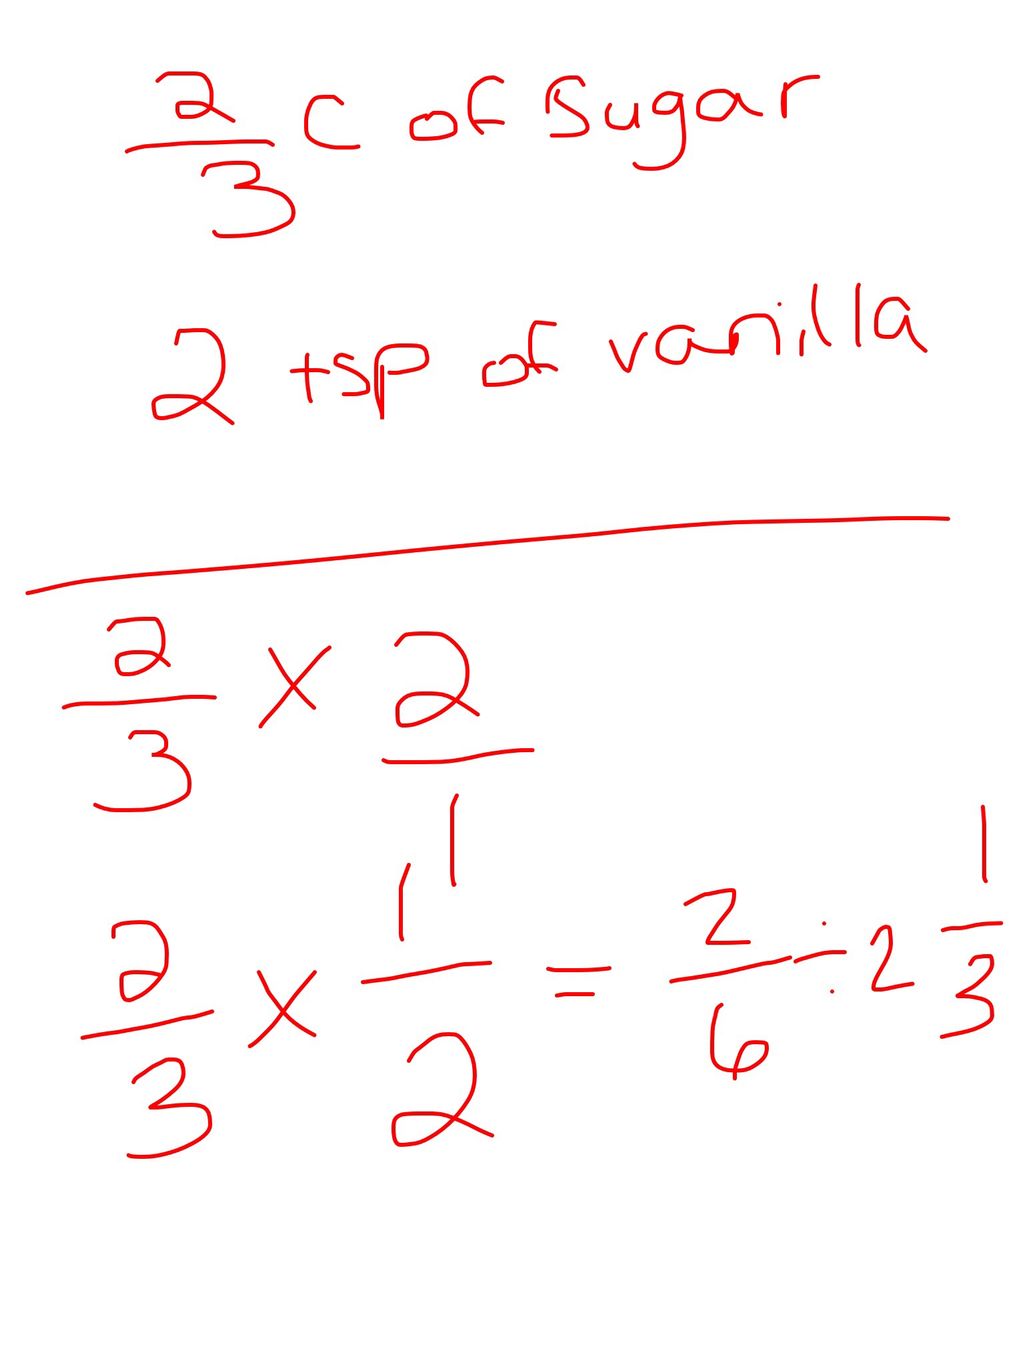 2/3 C of Sugar
2 tsp of vanilla
2/3 × 2/1
2/3 × 1/2 = 2/6 ÷ 2 1/3